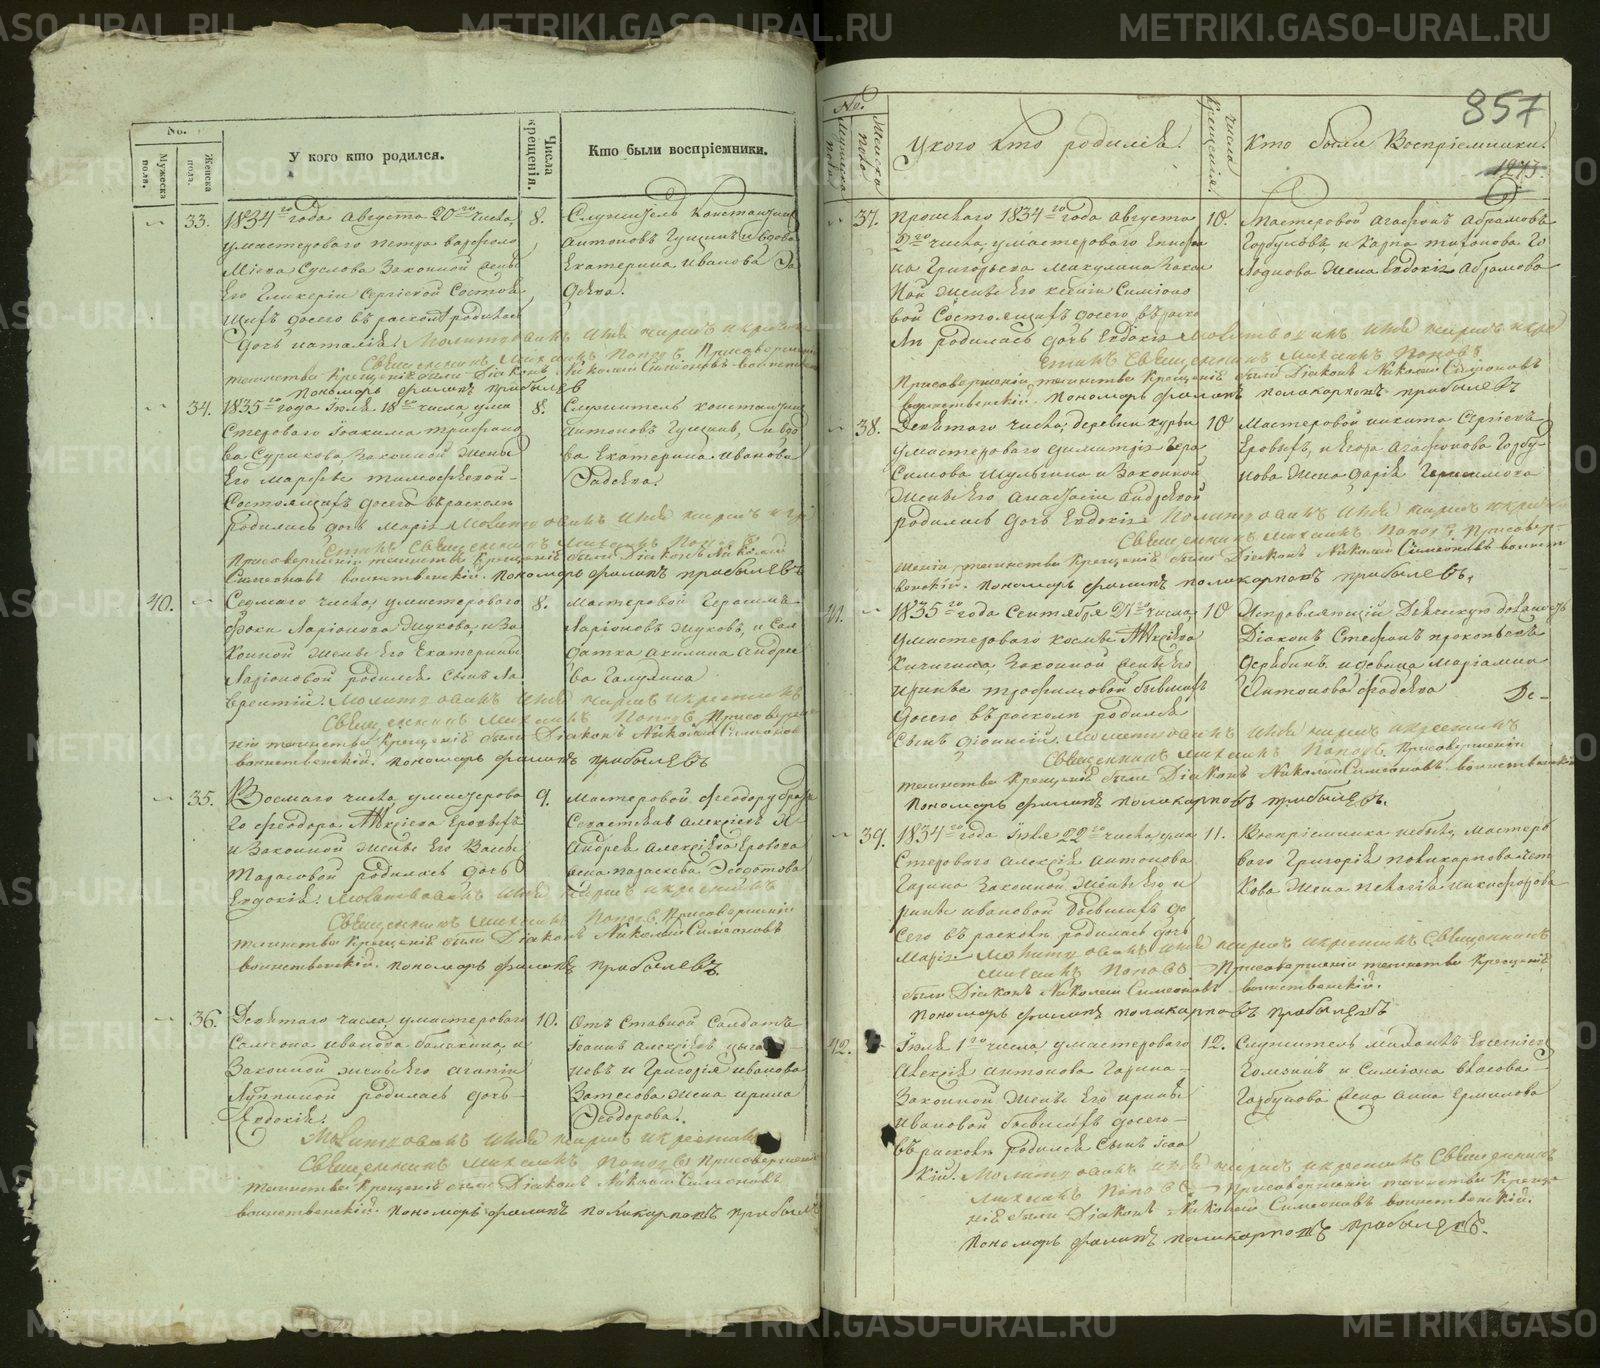 857
1273.
No.
Мужеска пола.
Женска пола.
У кого кто родился.
Числа крещенія.
Кто были воспріемники.
33.
1834го года Августа 20го числа,
у мастероваго Петра Варфоло
мѣева Суслова Законной жены
Его Гликеріи Сергіевой Состоя
щихъ досего въ расколѣ родилась
дочь Наталія.
Молитвовалъ имя нарекъ и крестилъ
Священникъ Михаилъ Поповъ. При совершеніи
таинства Крещенія были Діаконъ Николай Симеоновъ воинственскій
Пономарь Филипъ Прибылевъ
8.
Служитель Константинъ
Антоновъ Гущинъ и вдова
Екатерина Иванова
34.
1835го года Іюля 18го числа у ма
стероваго Іоакима Трифоно
ва Сурикова, Законной жены
Его Марфы Тимофеевой
Состоящихъ досего въ расколѣ
родилась дочь Марія
Молитвовалъ имя нарекъ и кре
стилъ Священникъ Михаилъ Поповъ
При совершеніи таинства Крещенія были Діаконъ Николай
Симеоновъ воинственскій. Пономарь Филипъ Прибылевъ
8.
Служитель Константинъ
Антоновъ Гущинъ, и вдо
ва Екатерина Иванова
40.
Седмаго числа, у мастероваго
Фоки Ларіонова Жукова, и За
конной жены Его Екатерины
Ларіоновой родился сынъ Ла
врентій.
Молитвовалъ имя нарекъ и крестилъ
Священникъ Михаилъ Поповъ, При соверше
ніи таинства Крещенія были Діаконъ Николай Симеоновъ
воинственскій. Пономарь Филипъ Прибылевъ
8.
Мастеровой Герасимъ
Ларіоновъ Жуковъ, и Сол
датка Акилина Андрее
ва
35.
Восмаго числа, у мастерова
го Феодора Алексіева
и Законной жены Его Вассы
Тарасовой родилась дочь
Евдокія.
Молитвовалъ имя нарекъ и крестилъ
Священникъ Михаилъ Поповъ. При совершеніи
таинства Крещенія были Діаконъ Николай Симеоновъ
воинственскій. Пономарь Филипъ Прибылевъ
9.
Мастеровой Феодор
Севастьян Алексіевъ
Андрея Алексіева
жена Параскева Федотова
36.
Девятаго числа, у мастероваго
Самсона Иванова Балакина, и
Законной жены Его Агапіи
родилась дочь
Евдокія.
Молитвовалъ имя нарекъ и крестилъ
Священникъ Михаилъ Поповъ При совершеніи
таинства Крещенія были Діаконъ Николай Симеоновъ
воинственскій. Пономарь Филипъ Поликарповъ Прибылевъ
10.
Отъ ставной Солдатъ
Іоаннъ Алексіевъ Цыга
новъ и Григорія Иванова
Ватесова жена Ирина
Феодорова.
No.
Мужеска пола
Женска пола
У кого кто родился.
Числа Крещенія.
Кто были Воспріемники.
37.
Прошлаго 1834го года Августа
2го числа, у мастероваго
Григорьева Макулина Закон
ной жены Его Ксеніи Симіоно
вой Состоящихъ досего въ раско
лѣ родилась дочь Евдокія
Молитвовалъ имя нарекъ и кре
стилъ Священникъ Михаилъ Поповъ
При совершеніи таинства Крещенія были Діаконъ Николай Симеоновъ
воинственскій Пономарь Филипъ Поликарповъ Прибылевъ
10.
Мастеровой Агафонъ Абрамовъ
Горбуновъ и Карпа Тихонова Го
лоднова жена Евдокія Абрамова
38.
Девятаго числа, деревни Курьи
у мастероваго Димитрія Гера
симова Шульгина и Законной
жены Его Анастасіи Андреевой
родилась дочь Евдокія
Молитвовалъ имя нарекъ и крестилъ
Священникъ Михаилъ Поповъ При совер
шеніи таинства Крещенія были Діаконъ Николай Симеоновъ воинст
венскій. Пономарь Филипъ Поликарповъ Прибылевъ,
10
Мастеровой Никита Сергіевъ
и Егора Агафонова Горбу
нова жена Дарія Герасимова
41.
1835го года Сентября 21го числа,
у мастероваго Космы Алексіева
Кичигина, Законной жены Его
Ирины Трофимовой бывшихъ
досего въ расколѣ родился
сынъ Діонисій.
Молитвовалъ имя нарекъ и крестилъ
Священникъ Михаилъ Поповъ, При совершеніи
таинства Крещенія были Діаконъ Николай Симеоновъ воинственскій
Пономарь Филипъ Поликарповъ Прибылевъ.
10
Исправляющій Дьяческую должность
Діаконъ Стефанъ Прокопьевъ
Дерябинъ и девица Маріамна
Антонова Фадеева
Де-
39.
1834го года Іюля 22го числа, у ма
стероваго Алексія Антонова
Гарина Законной жены Его И
рины Ивановой бывшихъ до
сего въ расколѣ родилась дочь
Марія
Молитвовалъ имя нарекъ и крестилъ Священникъ
Михаилъ Поповъ При совершеніи таинства Крещенія
были Діаконъ Николай Симеоновъ воинственскій.
Пономарь Филипъ Поликарповъ Прибылевъ
11.
Воспріемника небыло, Мастеро
ваго Григорія Поликарпова
жена Пелагія Никифорова
42.
Іюля 1го числа у мастероваго
Алексія Антонова Гарина
Законной жены Его Ирины
Ивановой бывшихъ досего
въ расколѣ родился Сынъ Іоа
кій.
Молитвовалъ имя нарекъ и крестилъ Священникъ
Михаилъ Поповъ При совершеніи таинства Креще
нія были Діаконъ Николай Симеоновъ воинственскій.
Пономарь Филипъ Поликарповъ Прибылевъ.
12.
Служитель Михаилъ Евсеніевъ
Гомзинъ и Симіона Власова
Горбунова жена Анна Ермилова
METRIKI.GASO-URAL.RU